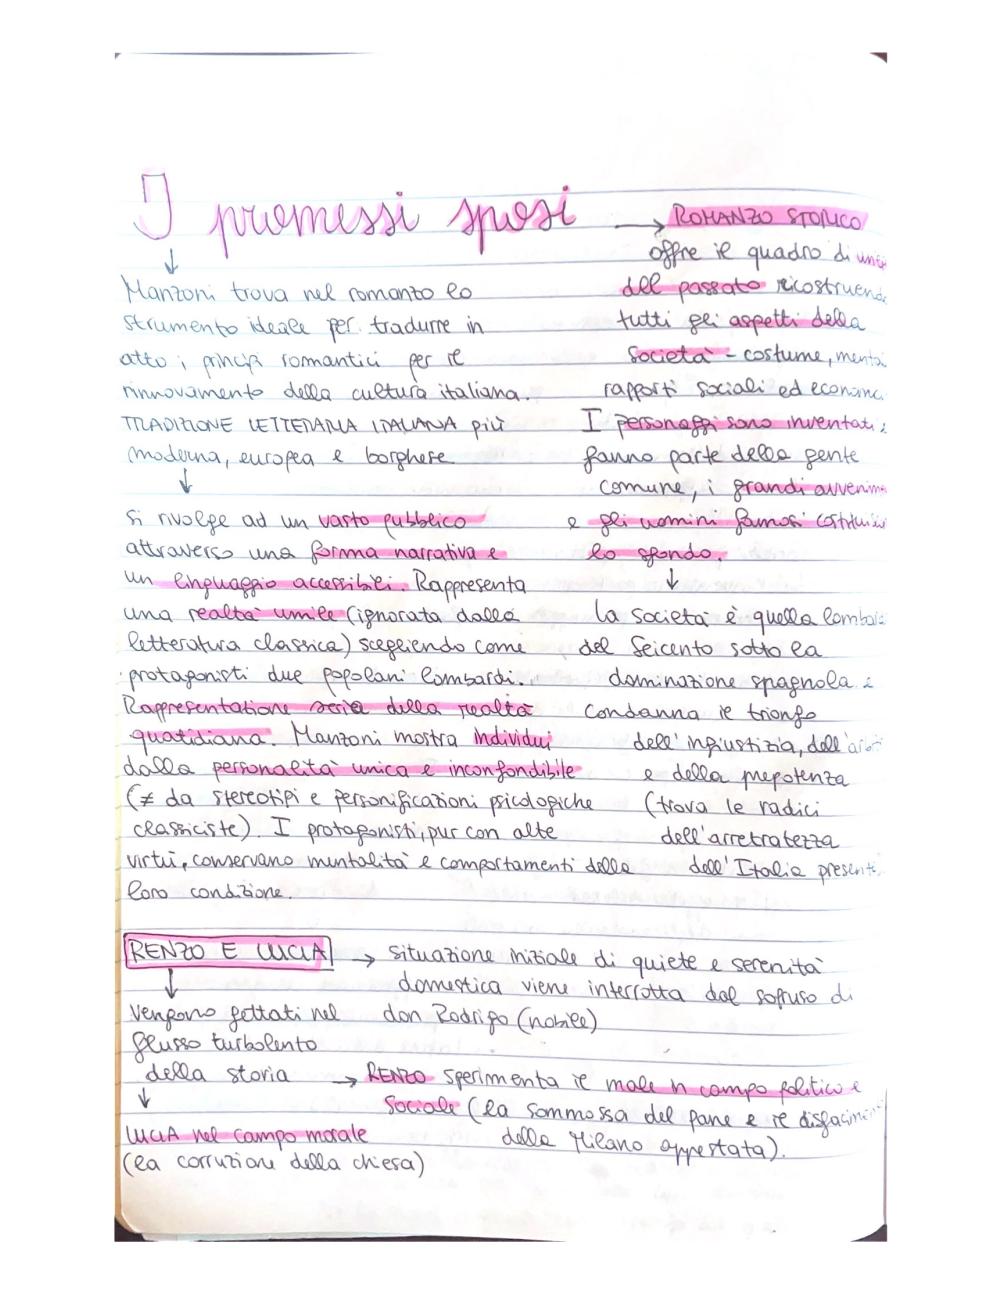 I promessi sposi
→ ROMANZO STORICO
↓
Manzoni trova nel romanzo lo
strumento ideale per tradurre in
atto i principi romantici per il
rinnovamento della cultura italiana.
TRADIZIONE LETTERARIA ITALIANA più
moderna, europea e borghese
↓
Si rivolge ad un vasto pubblico
attraverso una forma narrativa e
un linguaggio accessibili. Rappresenta
una realtà umile (ignorata dalla
letteratura classica) scegliendo come
protagonisti due popolani lombardi.
Rappresentazione seria della realtà
quotidiana. Manzoni mostra individui
dalla personalità unica e inconfondibile
(≠ da stereotipi e personificazioni psicologiche
classiciste). I protagonisti, pur con alte
virtù, conservano mentalità e comportamenti della
loro condizione.
offre il quadro di
del passato ricostruendo
tutti gli aspetti della
società - costume,
rapporti sociali ed
I personaggi sono inventati e
fanno parte della gente
comune, i grandi
e gli uomini famosi
lo sfondo.
↓
La società è quella
del Seicento sotto la
dominazione spagnola e
condanna il trionfo
dell'ingiustizia,
e della prepotenza
(trova le radici
dell'arretratezza
dell'Italia
RENZO E LUCIA → situazione iniziale di quiete e serenità
domestica viene interrotta dal sopruso di
don Rodrigo (nobile)
↓
Vengono gettati nel
flusso turbolento
della storia
→ RENZO sperimenta il male in campo politico e
sociale (la sommossa del pane e il
della Milano appestata).
↓
LUCIA nel campo morale
(la corruzione della chiesa)